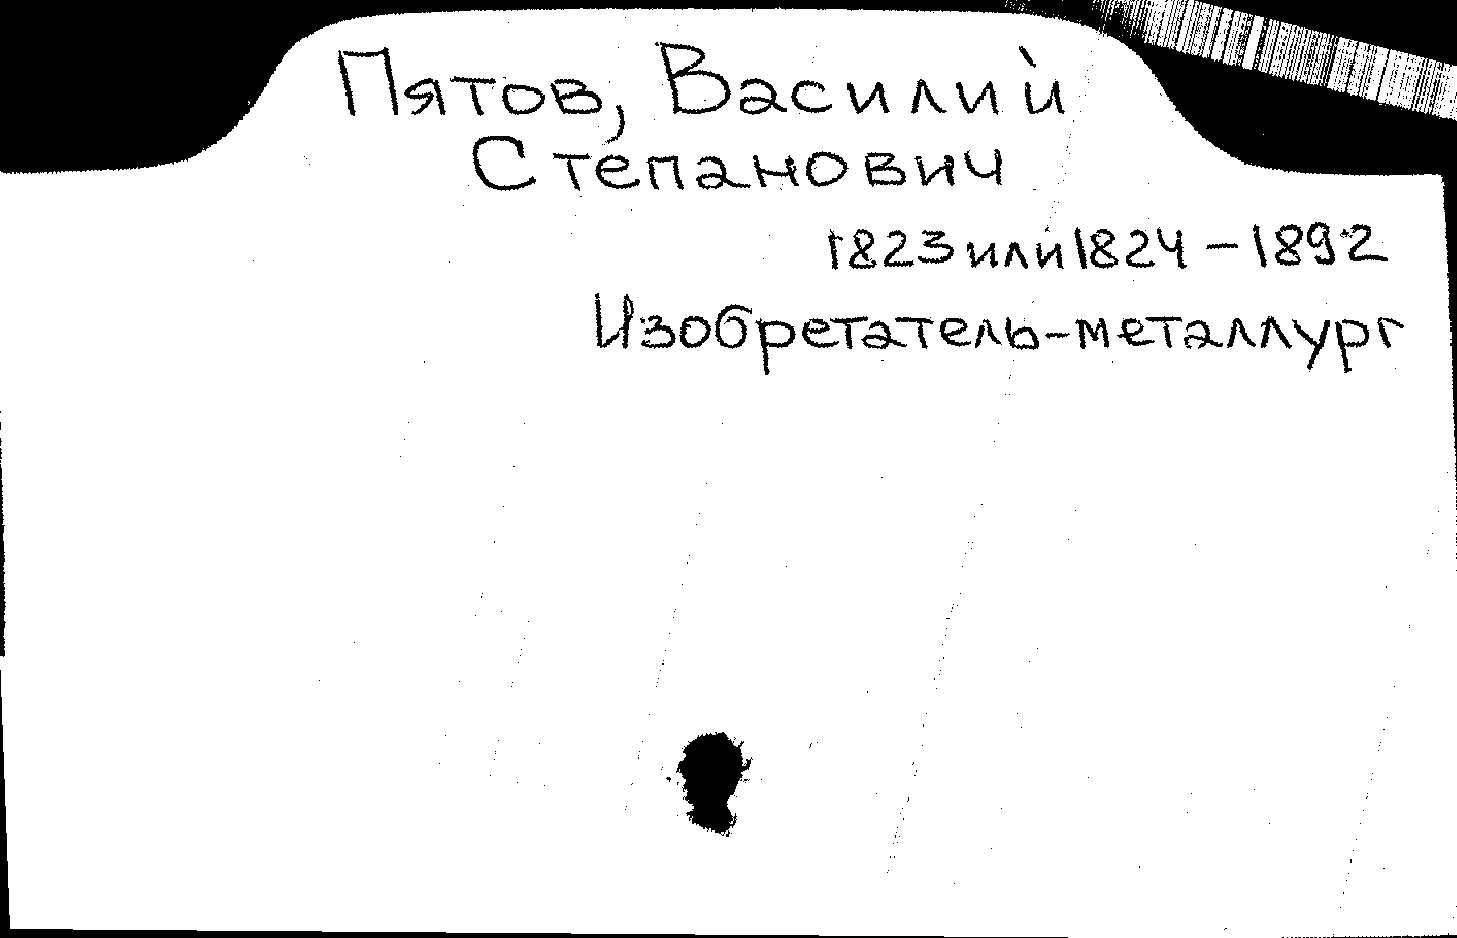 Пятов, Василий
Степанович
1823 или 1824 – 1892
Изобретатель-металлург